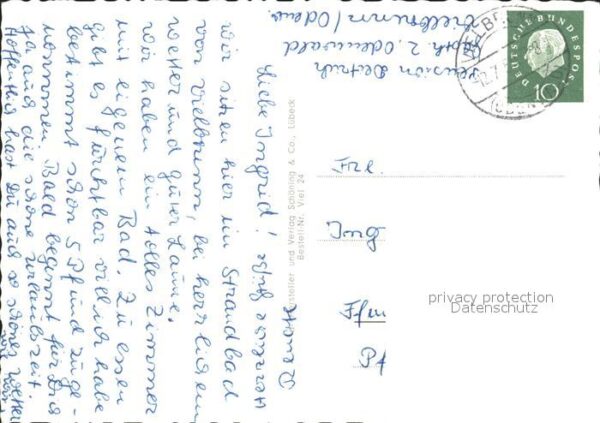 Pension Dettrich
Vielbrunn / Odenw.
Liebe Ingrid!
wir sitzen hier im Strandbad
von Vielbrunn, bei herrlichem
Wetter und guter Laune.
Wir haben ein tolles Zimmer
mit eigenem Bad. Zu essen
gibt es furchtbar viel, ich habe
bestimmt schon 5 Pfund zuge-
nommen. Bald beginnt für Dich
ja auch die schöne Urlaubszeit.
Hoffentlich hast Du auch so schönes Wetter
wie wir.
Renate
Hersteller und Verlag Schöning & Co., Lübeck
Bestell-Nr. Viel 24
DEUTSCHE BUNDESPOST
10
Frl.
Ing
Ffm
Pf
privacy protection
Datenschutz